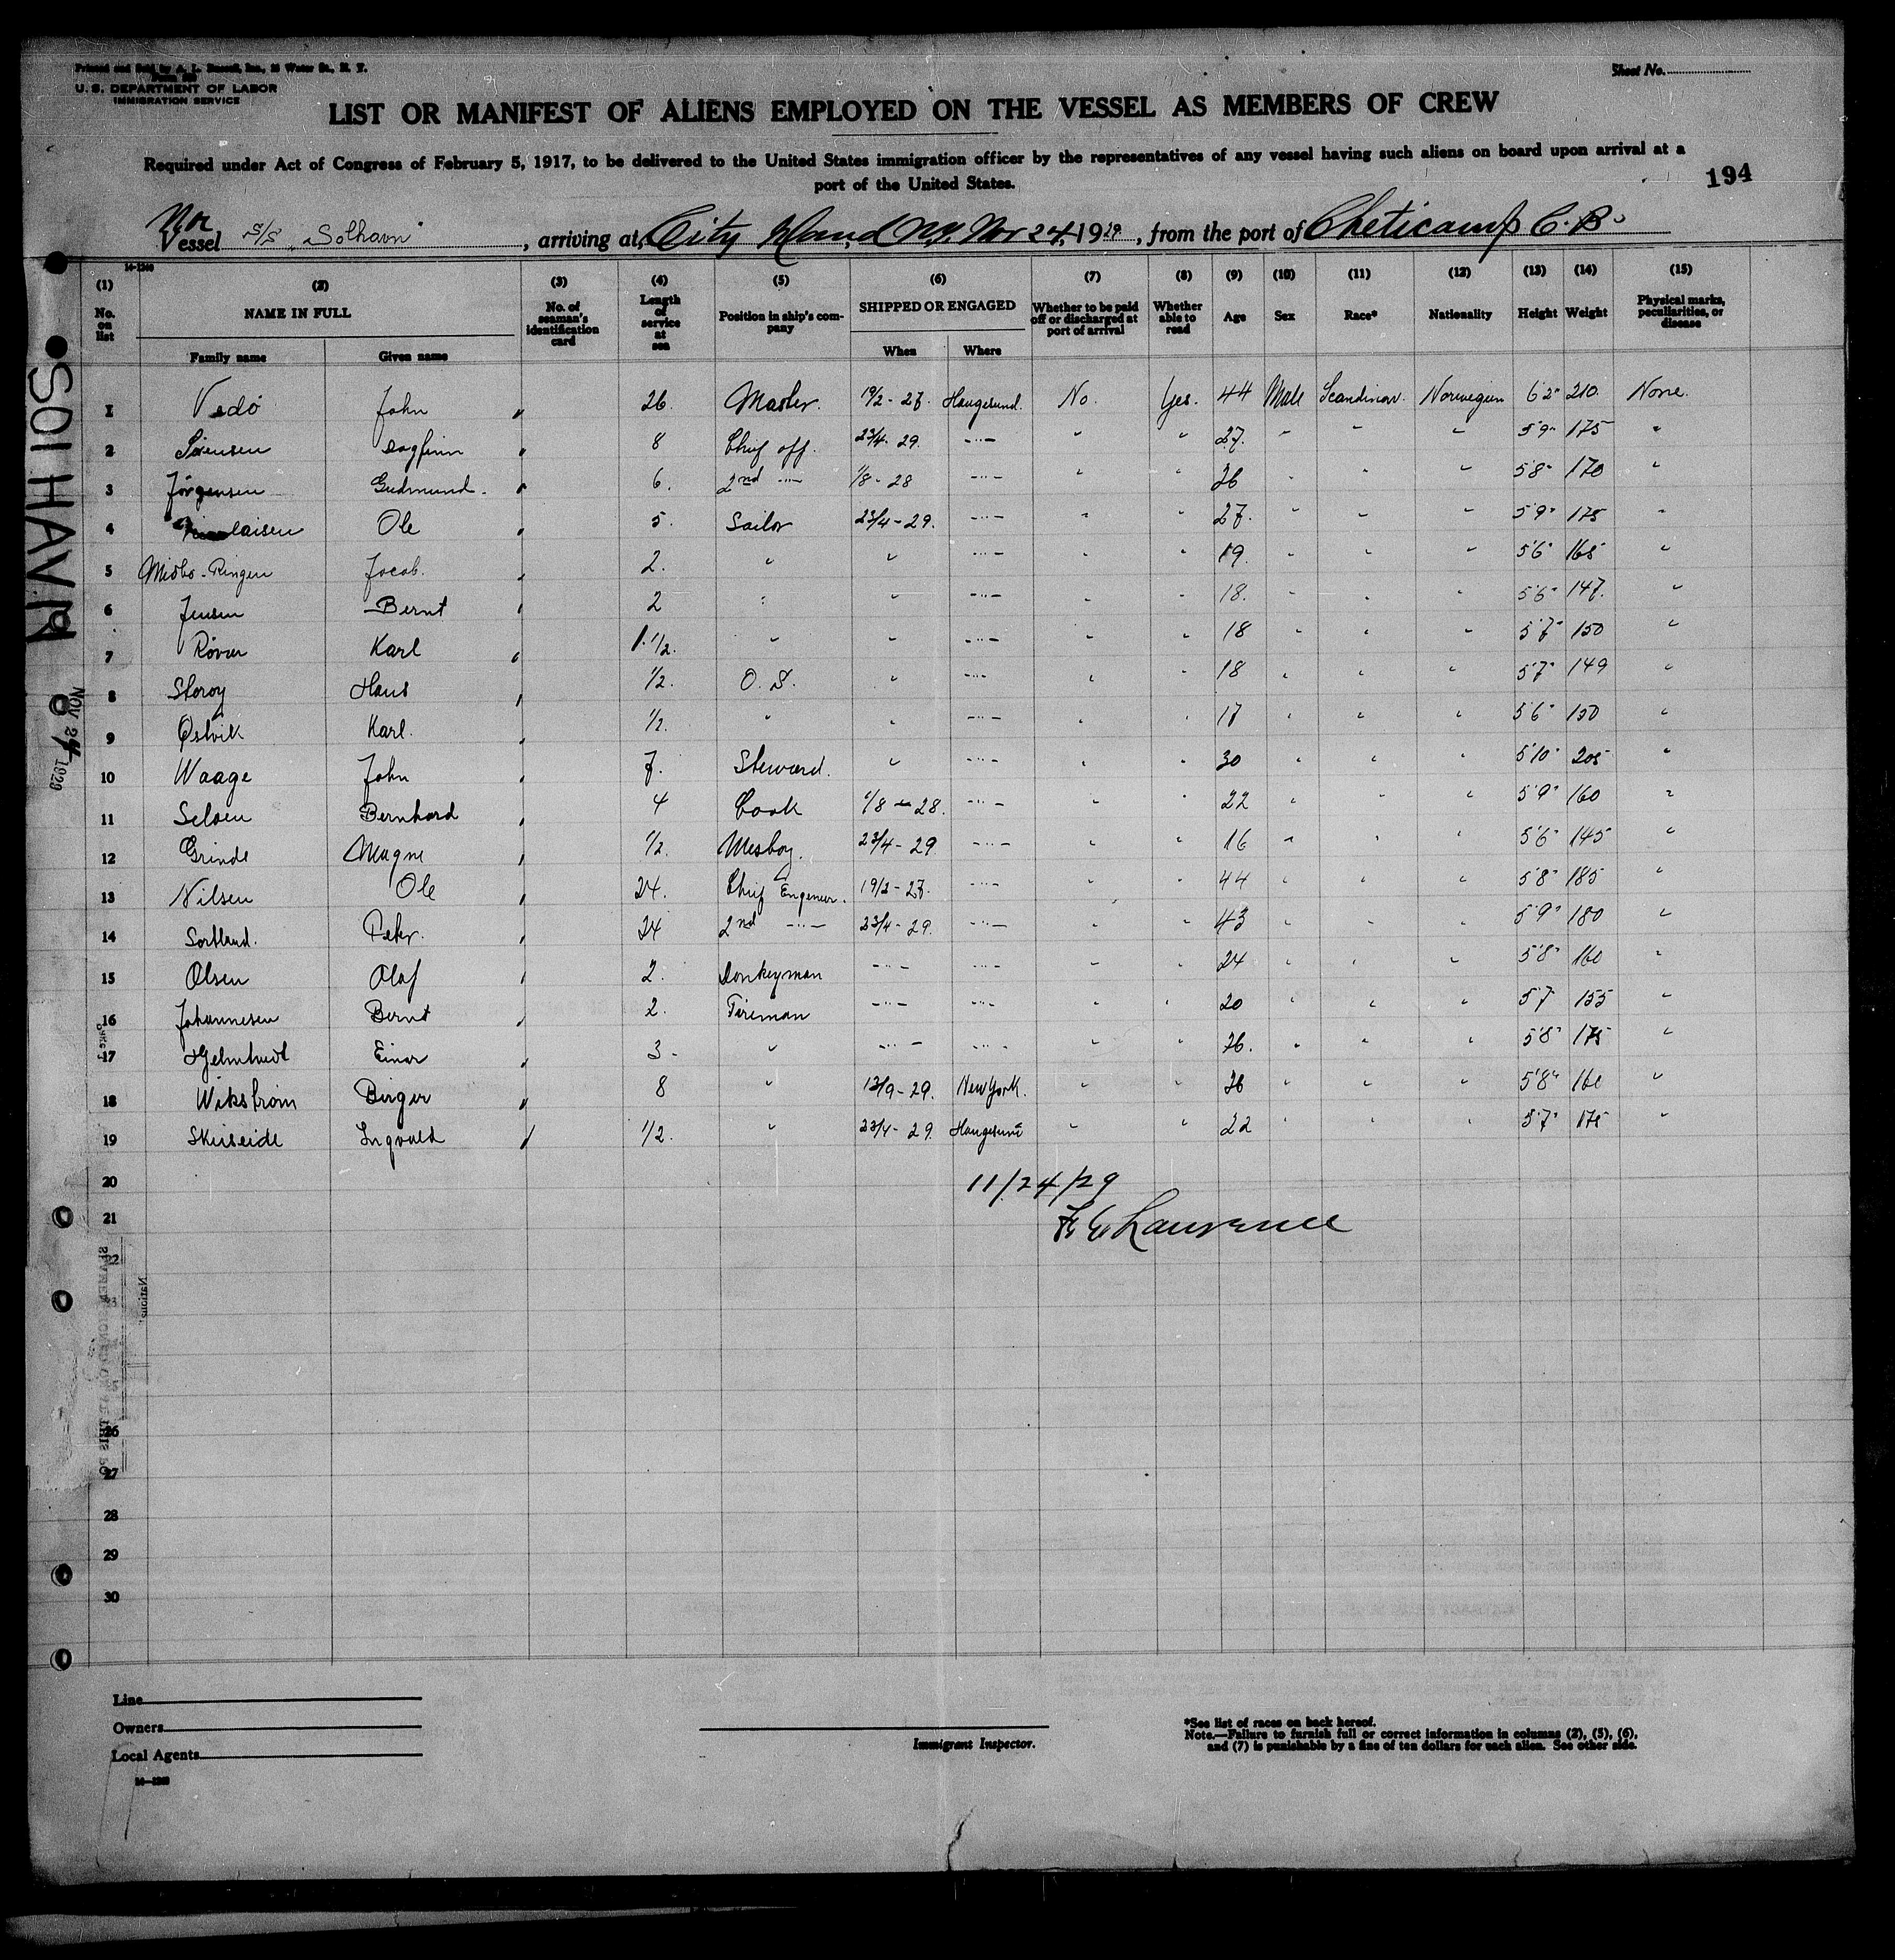 Printed and Sold by A. L. Russell, Inc., Water St., N. Y.
U. S. DEPARTMENT OF LABOR
IMMIGRATION SERVICE
Sheet No.
LIST OR MANIFEST OF ALIENS EMPLOYED ON THE VESSEL AS MEMBERS OF CREW
Required under Act of Congress of February 5, 1917, to be delivered to the United States immigration officer by the representatives of any vessel having such aliens on board upon arrival at a
port of the United States.
194
Nor
Vessel S/S "Solhavn", arriving at City Island N.Y. Nov 24, 1929, from the port of Cheticamp C. B.
(1) (2) (3) (4) (5) (6) (7) (8) (9) (10) (11) (12) (13) (14) (15)
No. on list NAME IN FULL No. of seaman's identification card Length of service at sea Position in ship's company SHIPPED OR ENGAGED Whether to be paid off or discharged at port of arrival Whether able to read Age Sex Race* Nationality Height Weight Physical marks, peculiarities, or disease
Family name Given name When Where
1 Vedö John 26 Master. 19/2-27 Haugesund. No. Yes. 44 Male Scandinav. Norwegian 6'2" 210. None.
2 Sørensen Dagfinn 8 Chief off. 23/4-29. -"- " " 27. " " " 5'9" 175 "
3 Jørgensen Gudmund. 6. 2nd -"- 1/8-28 -"- " " 26 " " " 5'8" 170 "
4 laisen Ole 5. Sailor 23/4-29. -"- " " 27. " " " 5'9" 175 "
5 Ringen Jacob. 2. " " -"- " " 19. " " " 5'6" 165 "
6 Jensen Bernt 2 " " -"- " " 18. " " " 5'6" 147. "
7 Røvær Karl 1 1/2. " " -"- " " 18 " " " 5'7" 150 "
8 Storøy Hans 1/2. O. S. " -"- " " 18 " " " 5'7" 149 "
9 Østvik Karl. 1/2. " " -"- " " 17 " " " 5'6" 150 "
10 Waage John 7. Steward. " -"- " " 30 " " " 5'10" 205 "
11 Bernhard 4 Cook 1/8-28. -"- " " 22 " " " 5'9" 160 "
12 Grinde Magne 1/2. Mesboy. 23/4-29 -"- " " 16 " " " 5'6" 145 "
13 Nilsen Ole 24. Chief Engeneer. 19/2-27. -"- " " 44 " " " 5'8" 185 "
14 Sortland. Peter. 24 2nd -"- 23/4-29. -"- " " 43 " " " 5'9" 180 "
15 Olsen Olaf 2. Donkeyman -"- -"- " " 24 " " " 5'8" 160 "
16 Johannesen Bernt 2. Fireman -"- -"- " " 20 " " " 5'7 155 "
17 Einar 3- " -"- -"- " " 26. " " " 5'8" 175 "
18 Wikstrøm Birger 8 " 13/9-29. New York. " " 26 " " " 5'8" 160 "
19 Skeiseide Ingvald 1/2. " 23/4-29. Haugesund " " 22 " " " 5'7" 175 "
20
11/24/29
21
Lawrence
26
27
28
29
30
SOLHAVN
NOV 24 1929
Line
Owners
Local Agents
Immigrant Inspector.
*See list of races on back hereof.
Note.—Failure to furnish full or correct information in columns (2), (5), (6),
and (7) is punishable by a fine of ten dollars for each alien. See other side.